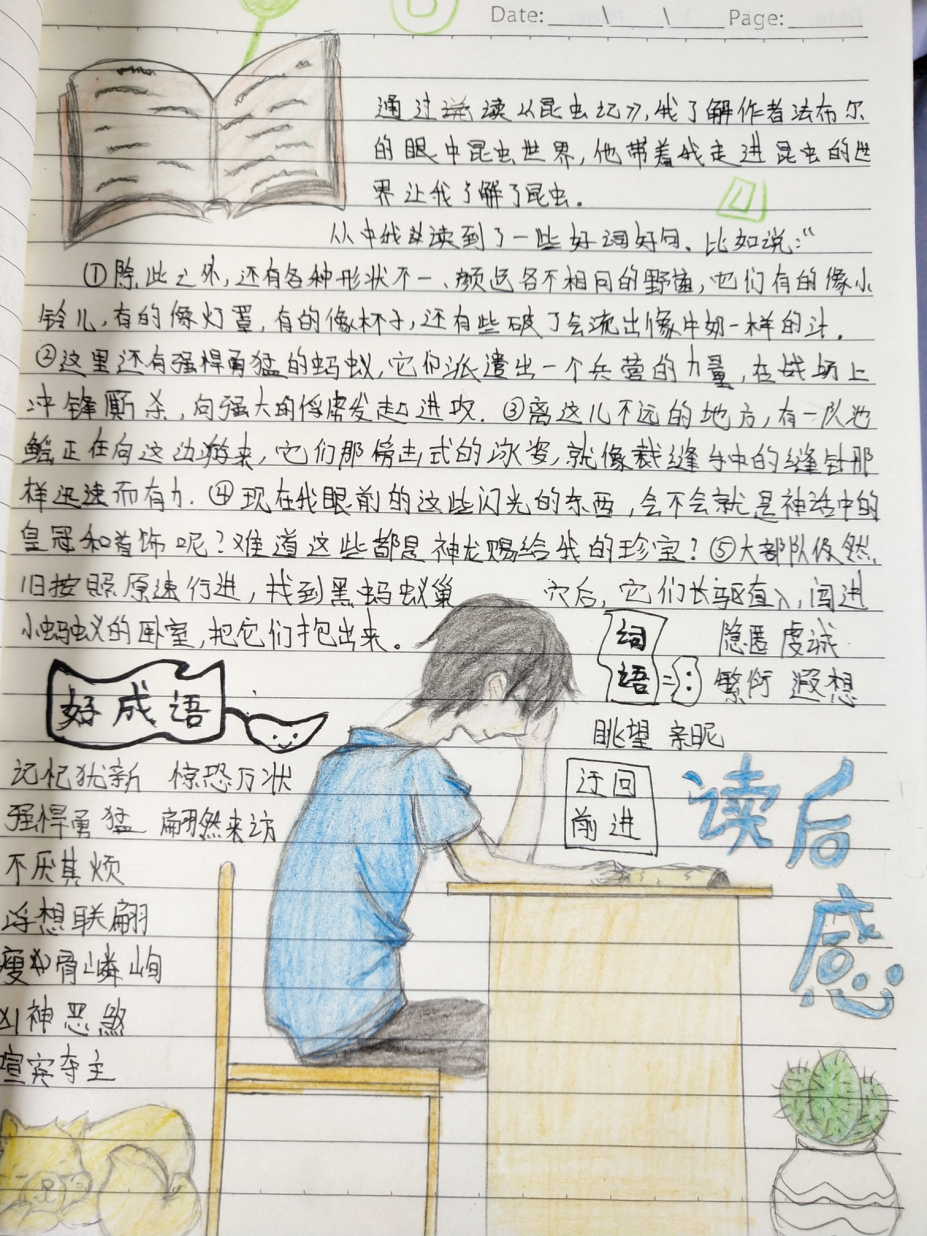 Date: \ \ Page:
通过读《昆虫记》,我了解作者法布尔
的眼中昆虫世界,他带着我走进昆虫的世
界让我了解了昆虫。
从中我读到了一些好词好句。比如说:“
①除此之外,还有各种形状不一、颜色各不相同的野菌,它们有的像小
铃儿,有的像灯罩,有的像杯子,还有些破了会流出像牛奶一样的汁.
②这里还有强悍勇猛的蚂蚁,它们派遣出一个兵营的力量,在战场上
冲锋厮杀,向强大的俘虏发起进攻.③离这儿不远的地方,有一队
正在向这边游来,它们那式的泳姿,就像裁缝手中的缝针那
样迅速而有力.④现在我眼前的这些闪光的东西,会不会就是神话中的
皇冠和首饰呢?难道这些都是神龙赐给我的珍宝?⑤大部队仍然
旧按照原速行进,找到黑蚂蚁巢穴后,它们长驱直入,闯进
小蚂蚁的卧室,把它们抱出来。
词语=: 隐匿 虔诚
繁衍 遐想
眺望 亲昵
迂回
前进
好成语
记忆犹新 惊恐万状
强悍勇猛 翩然来访
不厌其烦
浮想联翩
瘦骨嶙峋
凶神恶煞
喧宾夺主
读后
感